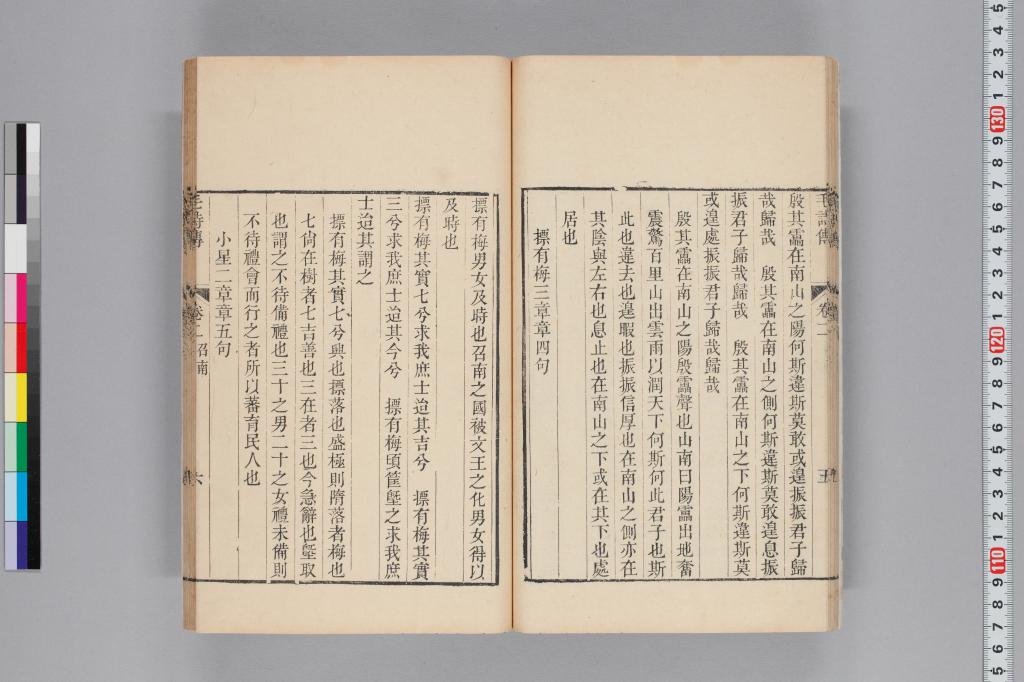 毛詩傳
卷二
五
殷其靁在南山之陽何斯違斯莫敢或遑振振君子歸
哉歸哉　殷其靁在南山之側何斯違斯莫敢遑息振
振君子歸哉歸哉　殷其靁在南山之下何斯違斯莫
或遑處振振君子歸哉歸哉
殷其靁在南山之陽殷靁聲也山南曰陽靁出地奮
震驚百里山出雲雨以潤天下何斯何此君子也斯
此也違去也遑暇也振振信厚也在南山之側亦在
其陰與左右也息止也在南山之下或在其下也處
居也
摽有梅三章章四句
摽有梅男女及時也召南之國被文王之化男女得以
及時也
摽有梅其實七兮求我庶士迨其吉兮　摽有梅其實
三兮求我庶士迨其今兮　摽有梅頃筐塈之求我庶
士迨其謂之
摽有梅其實七兮興也摽落也盛極則隋落者梅也
七尙在樹者七吉善也三在者三也今急辭也塈取
也謂之不待備禮也三十之男二十之女禮未備則
不待禮會而行之者所以蕃育民人也
小星二章章五句
毛詩傳
卷二 召南
六
5
4
3
2
1
130
9
8
7
6
5
4
3
2
1
120
9
8
7
6
5
4
3
2
1
110
9
8
7
6
5